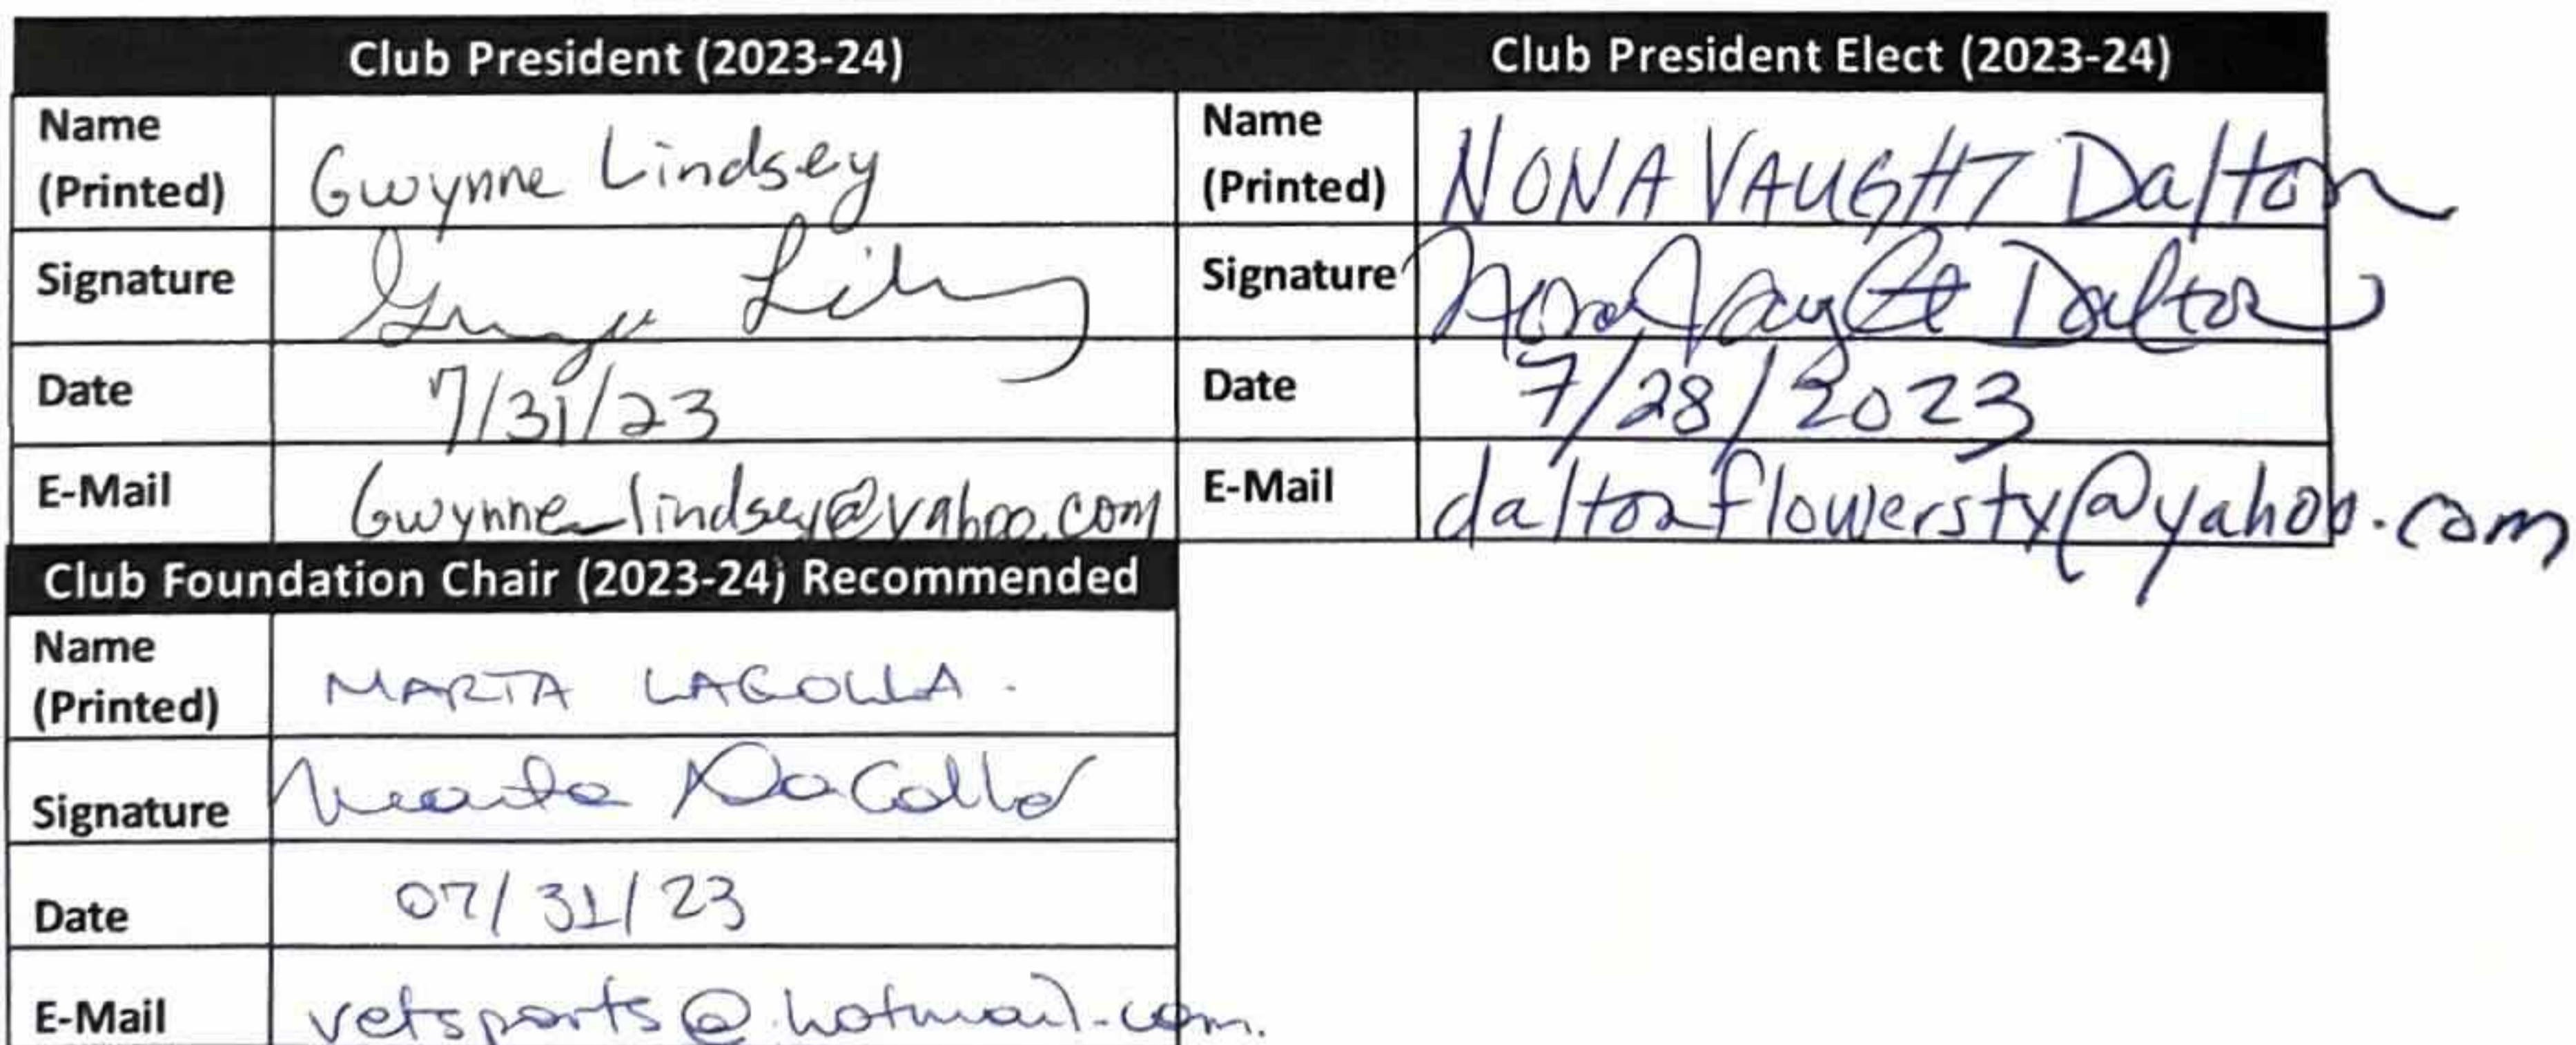 Club President (2023-24)
Name (Printed) Gwynne Lindsey
Signature Gwynne Lindsey
Date 7/31/23
E-Mail Gwynne_lindsey@yahoo.com
Club President Elect (2023-24)
Name (Printed) NONA VAUGHT Dalton
Signature Nona Vaught Dalton
Date 7/28/2023
E-Mail daltonflowersty@yahoo.com
Club Foundation Chair (2023-24) Recommended
Name (Printed) MARTA LACOLLA.
Signature Marta LaColla
Date 07/31/23
E-Mail vetsports@hotmail.com.